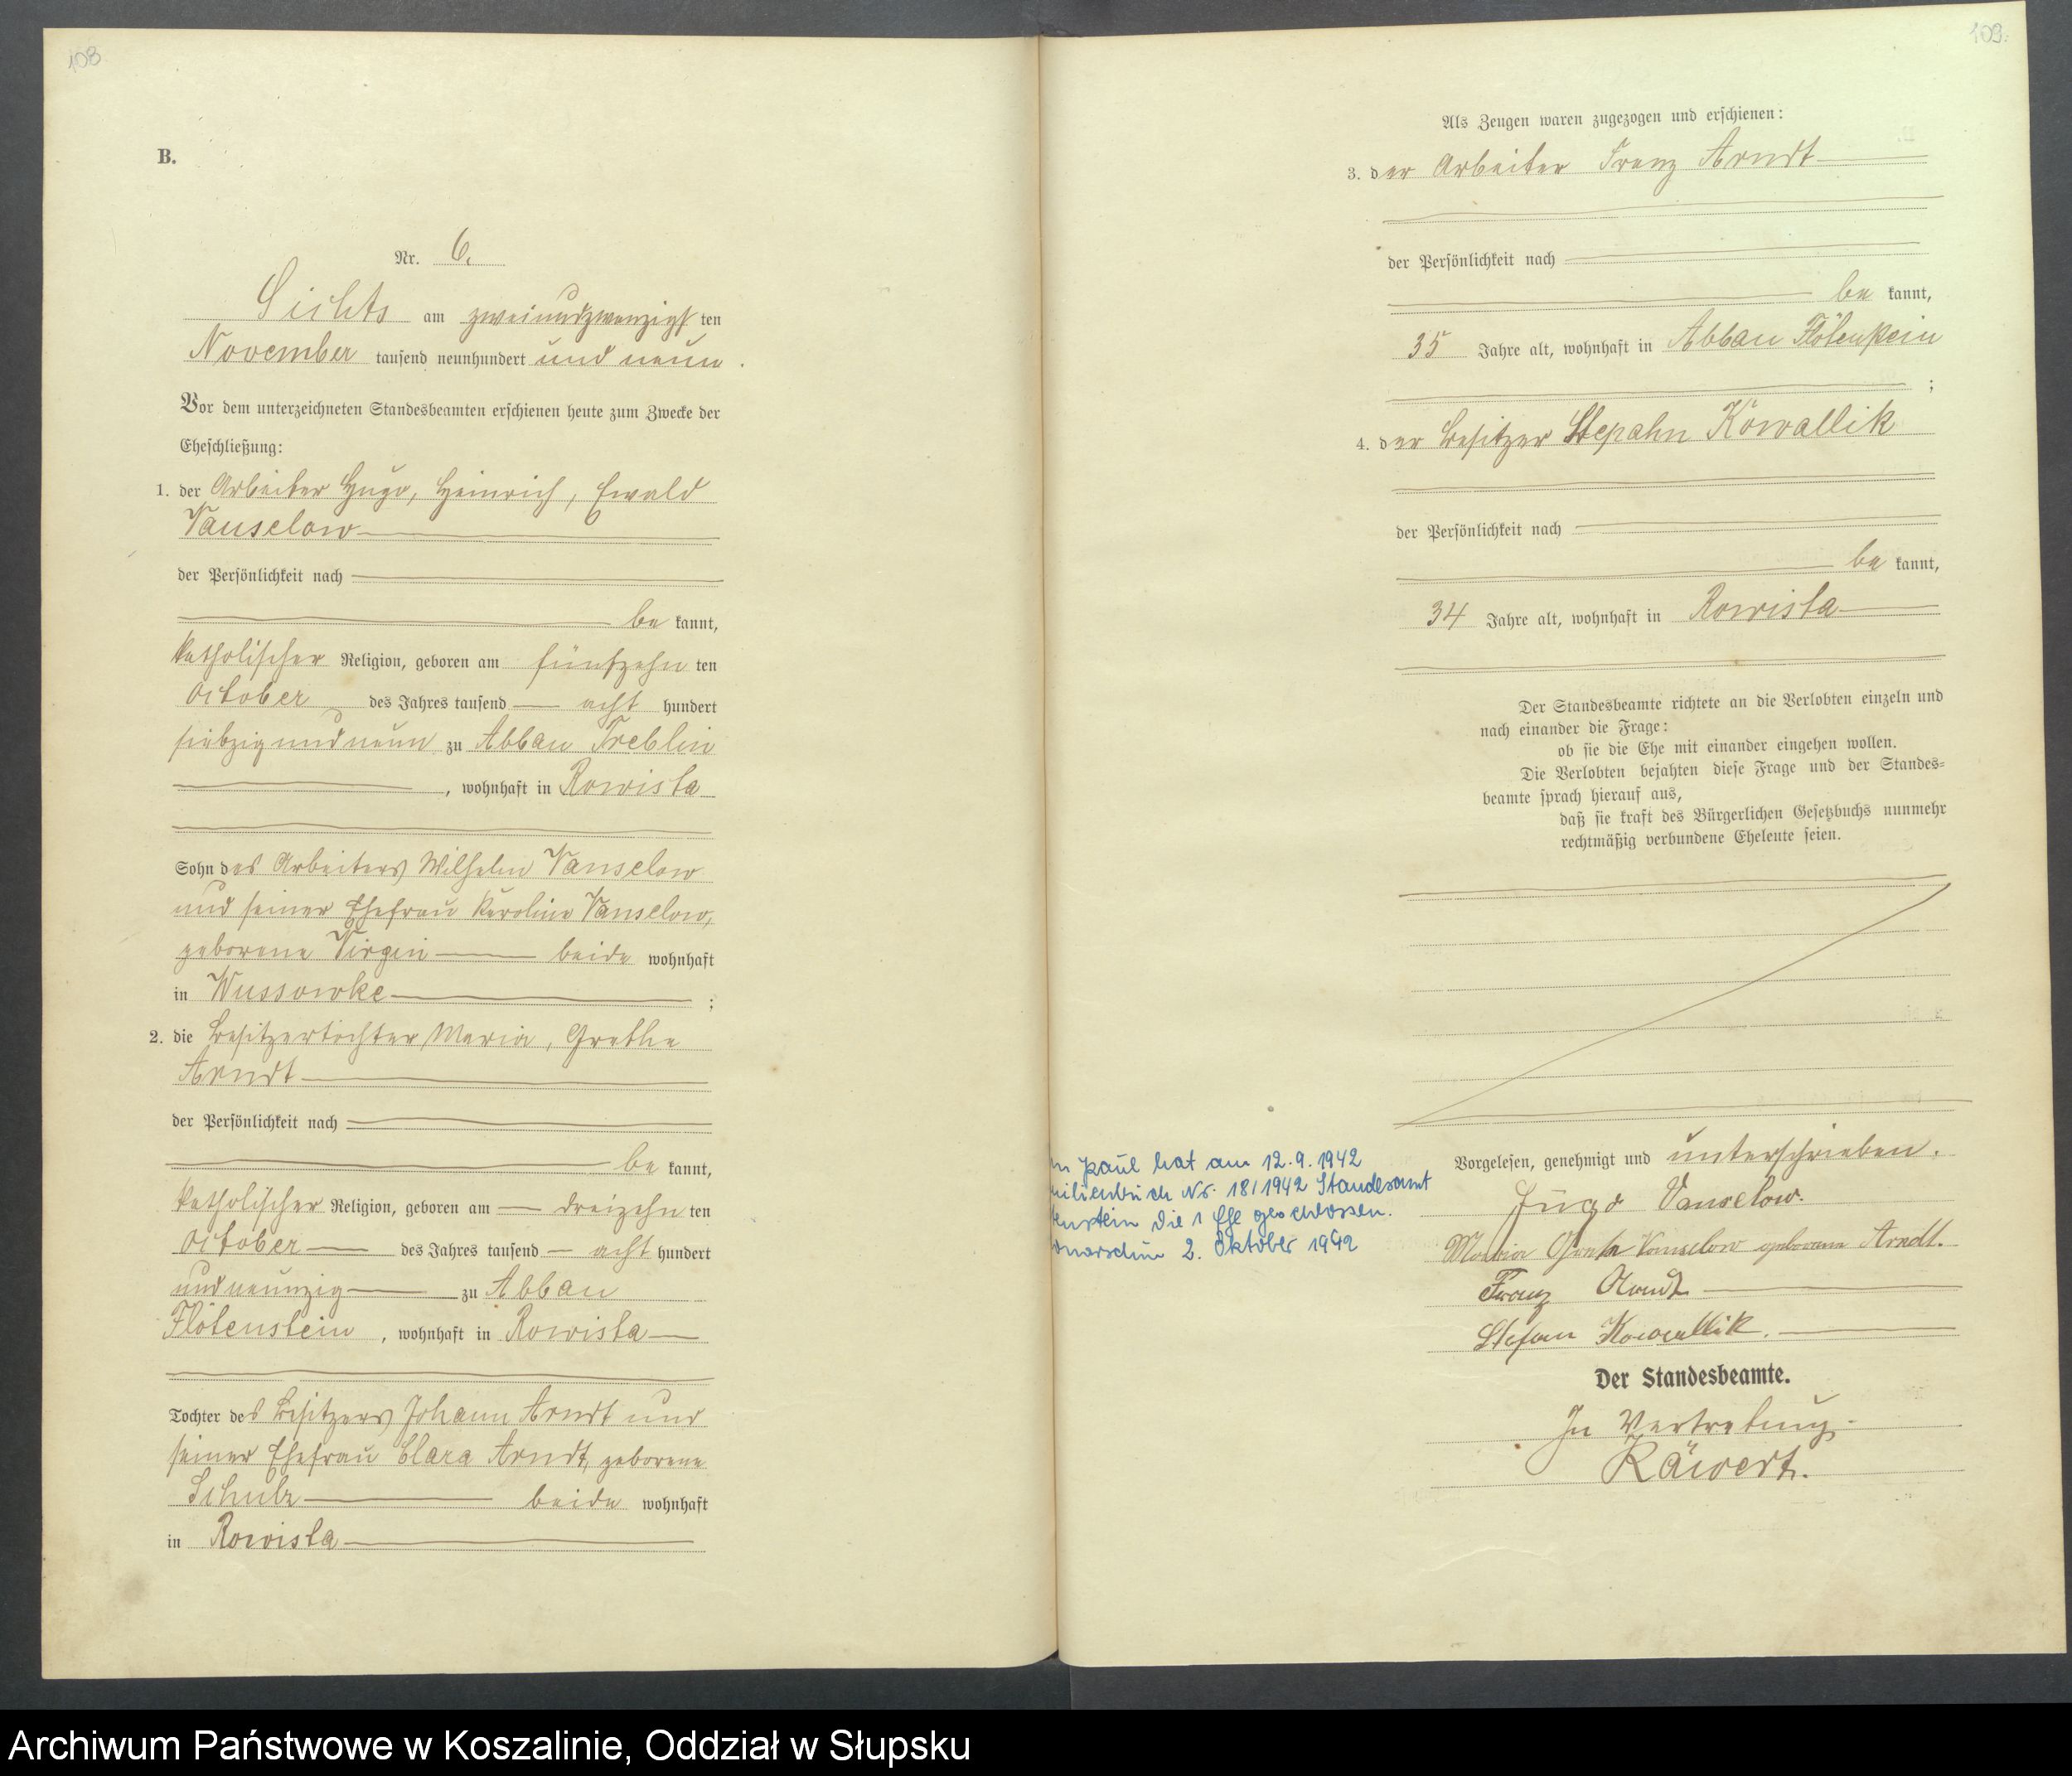 108
B.
Nr. 6.
Sichts am zweiundzwanzigsten
November tausend neunhundert und neun.
Vor dem unterzeichneten Standesbeamten erschienen heute zum Zwecke der
Eheschließung:
1. der Arbeiter Hugo, Heinrich, Ewald
Vanselow
der Persönlichkeit nach
be kannt,
katholischer Religion, geboren am fünfzehn ten
October des Jahres tausend acht hundert
siebzig und neun zu Abbau Treblin
, wohnhaft in Rowista
Sohn des Arbeiters Wilhelm Vanselow
und seiner Ehefrau Karoline Vanselow,
geborene Virgin beide wohnhaft
in Wussowke ;
2. die Besitzertochter Maria, Grethe
Arndt
der Persönlichkeit nach
be kannt,
katholischer Religion, geboren am dreizehn ten
October des Jahres tausend acht hundert
und neunzig zu Abbau
Flötenstein, wohnhaft in Rowista
Tochter des Besitzers Johann Arndt und
seiner Ehefrau Clara Arndt, geborene
Schulz beide wohnhaft
in Rowista
109.
Als Zeugen waren zugezogen und erschienen:
3. der Arbeiter Franz Arndt
der Persönlichkeit nach
be kannt,
35 Jahre alt, wohnhaft in Abbau Flötenstein
;
4. der Besitzer Stepahn Kowallik
der Persönlichkeit nach
be kannt,
34 Jahre alt, wohnhaft in Rowista
Der Standesbeamte richtete an die Verlobten einzeln und
nach einander die Frage:
ob sie die Ehe mit einander eingehen wollen.
Die Verlobten bejahten diese Frage und der Standes-
beamte sprach hierauf aus,
daß sie kraft des Bürgerlichen Gesetzbuchs nunmehr
rechtmäßig verbundene Eheleute seien.
Paul hat am 12.9.1942
Nr. 18/1942 Standesamt
die 1 Ehe geschlossen.
2. Oktober 1942
Vorgelesen, genehmigt und unterschrieben.
Hugo Vanselow.
Maria Greta Vanselow geborene Arndt.
Franz Arndt
Stefan Kowallik.
Der Standesbeamte.
In Vertretung.
Räwert.
Archiwum Państwowe w Koszalinie, Oddział w Słupsku